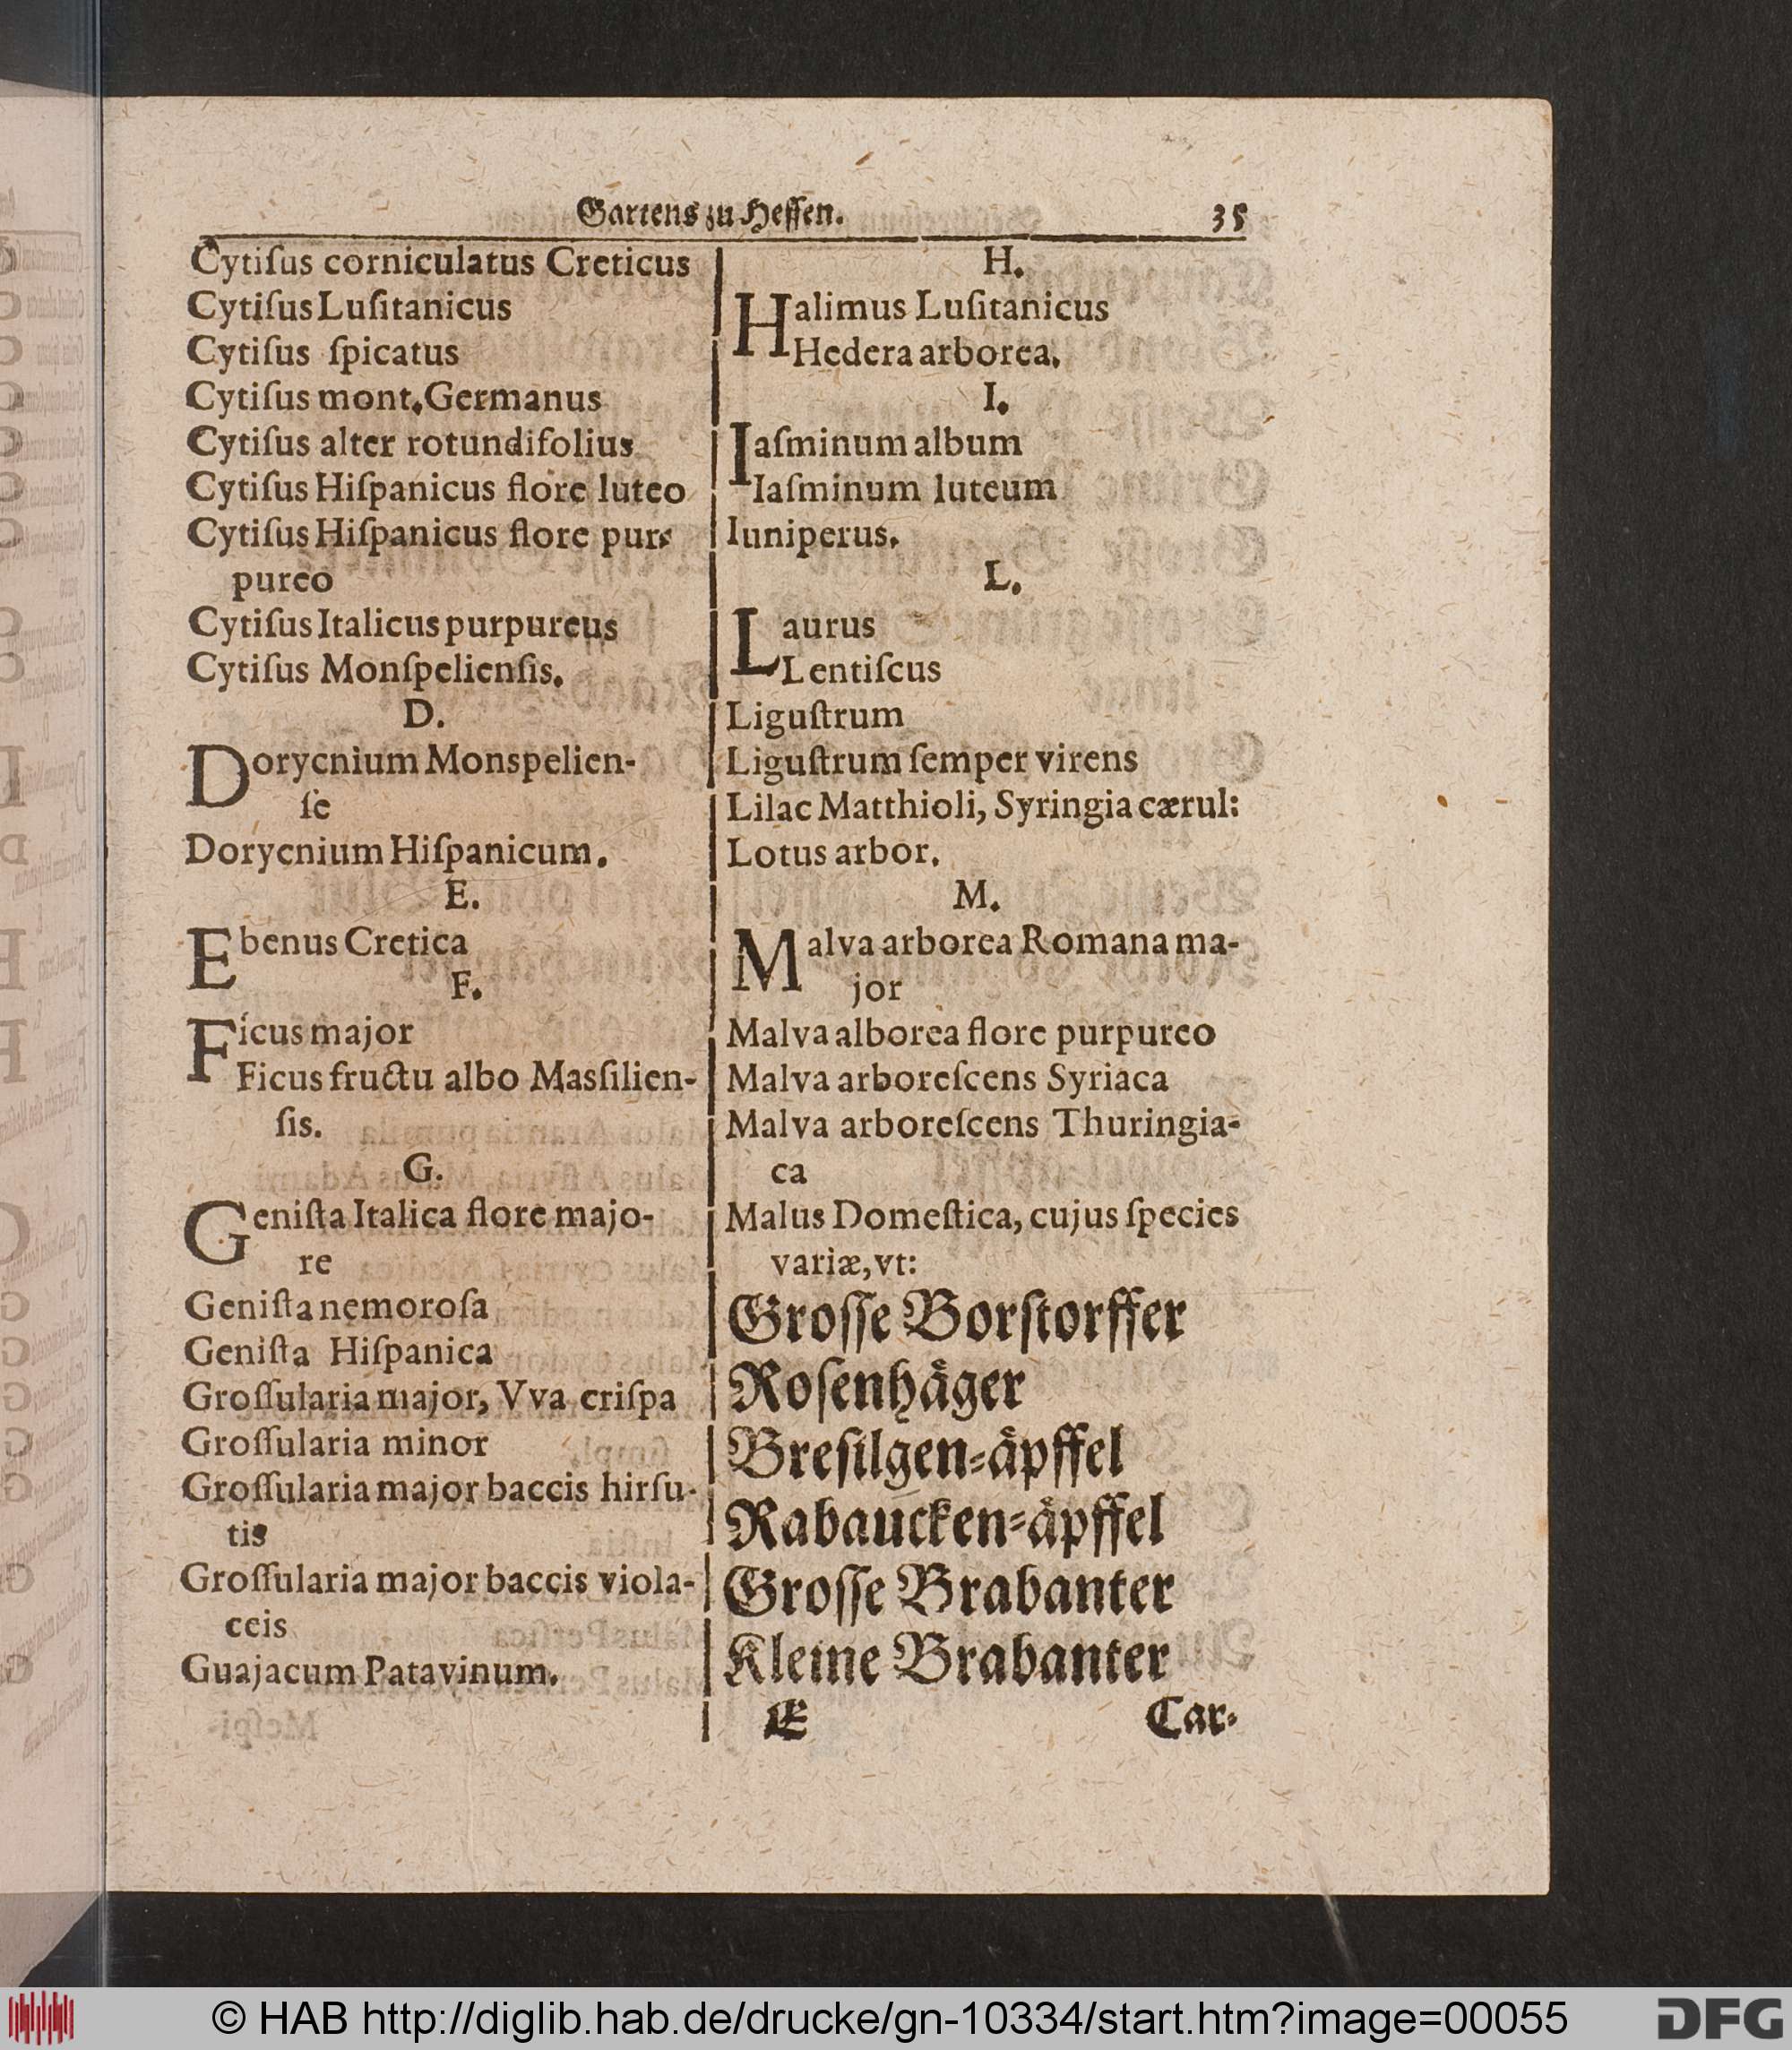 Gartens zu Hessen. 35
Cytiſus corniculatus Creticus
Cytiſus Luſitanicus
Cytiſus ſpicatus
Cytiſus mont. Germanus
Cytiſus alter rotundifolius
Cytiſus Hiſpanicus flore luteo
Cytiſus Hiſpanicus flore pur-
pureo
Cytiſus Italicus purpureus
Cytiſus Monſpelienſis.
D.
Dorycnium Monspelien-
ſe
Dorycnium Hiſpanicum.
E.
Ebenus Cretica
F.
Ficus major
Ficus fructu albo Masſilien-
ſis.
G.
Geniſta Italica flore majo-
re
Geniſta nemoroſa
Geniſta Hiſpanica
Groſſularia major, Vva criſpa
Groſſularia minor
Groſſularia major baccis hirſu-
tis
Groſſularia major baccis viola-
ceis
Guajacum Patavinum.
H.
Halimus Luſitanicus
Hedera arborea.
I.
Iaſminum album
Iaſminum luteum
Iuniperus.
L.
Laurus
Lentiſcus
Liguſtrum
Liguſtrum ſemper virens
Lilac Matthioli, Syringia cærul:
Lotus arbor.
M.
Malva arborea Romana ma-
jor
Malva alborea flore purpureo
Malva arboreſcens Syriaca
Malva arboreſcens Thuringia-
ca
Malus Domeſtica, cujus ſpecies
variæ, vt:
Groſſe Borſtorffer
Roſenhåger
Breſilgen-åpffel
Rabaucken-åpffel
Groſſe Brabanter
Kleine Brabanter
E Car-
© HAB http://diglib.hab.de/drucke/gn-10334/start.htm?image=00055
DFG